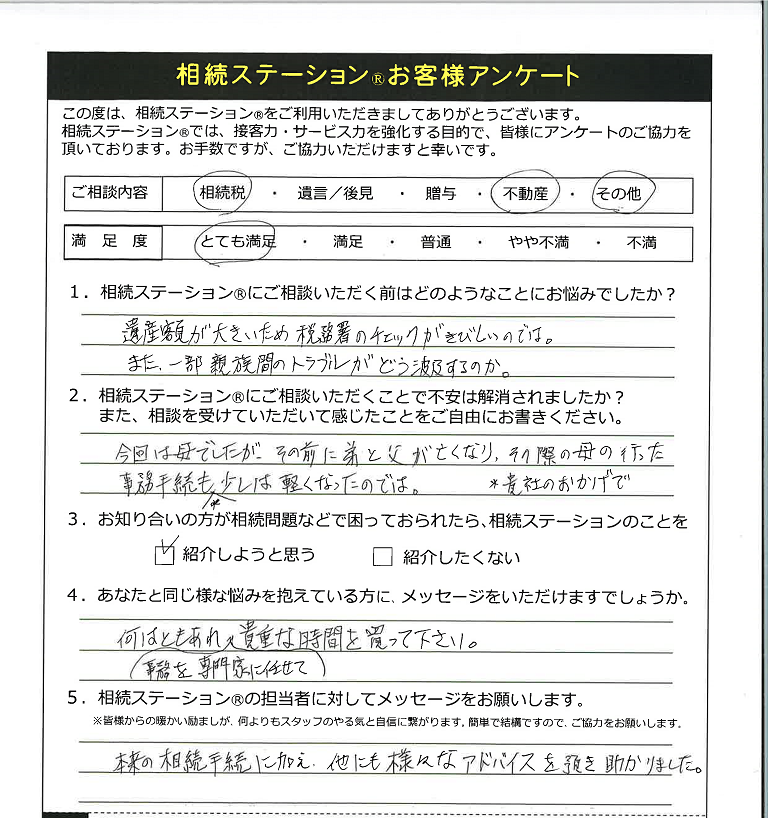 相続ステーション®お客様アンケート
この度は、相続ステーション®をご利用いただきましてありがとうございます。
相続ステーション®では、接客力・サービス力を強化する目的で、皆様にアンケートのご協力を
頂いております。お手数ですが、ご協力いただけますと幸いです。
ご相談内容 相続税 ・ 遺言／後見 ・ 贈与 ・ 不動産 ・ その他
満足度 とても満足 ・ 満足 ・ 普通 ・ やや不満 ・ 不満
1．相続ステーション®にご相談いただく前はどのようなことにお悩みでしたか？
遺産額が大きいため税務署のチェックがきびしいのでは。
また、一部親族間のトラブルがどう波及するのか。
2．相続ステーション®にご相談いただくことで不安は解消されましたか？
また、相談を受けていただいて感じたことをご自由にお書きください。
今回は母でしたが、その前に弟と父が亡くなり、その際の母の行った
事務手続も少しは軽くなったのでは。 *貴社のおかげで
*
3．お知り合いの方が相続問題などで困っておられたら、相続ステーションのことを
☑ 紹介しようと思う □ 紹介したくない
4．あなたと同じ様な悩みを抱えている方に、メッセージをいただけますでしょうか。
何はともあれ貴重な時間を買って下さい。
(事務を専門家に任せて)
5．相続ステーション®の担当者に対してメッセージをお願いします。
※皆様からの暖かい励ましが、何よりもスタッフのやる気と自信に繋がります。簡単で結構ですので、ご協力をお願いします。
本来の相続手続に加え、他にも様々なアドバイスを頂き助かりました。